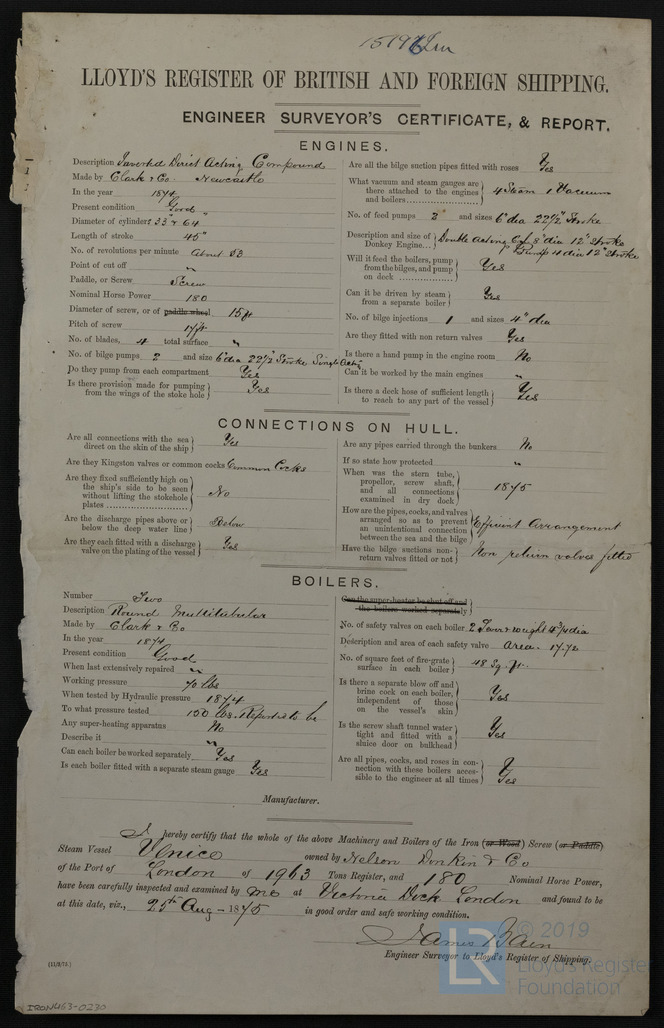 15196 Lon
LLOYD'S REGISTER OF BRITISH AND FOREIGN SHIPPING.
ENGINEER SURVEYOR'S CERTIFICATE, & REPORT.
ENGINES.
Description Inverted Direct Acting Compound
Made by Clark & Co. Newcastle
In the year 1874
Present condition Good
Diameter of cylinders 33" & 64"
Length of stroke 45"
No. of revolutions per minute About 53
Point of cut off "
Paddle, or Screw Screw
Nominal Horse Power 180
Diameter of screw, or of paddle wheel 15 ft
Pitch of screw 17 ft
No. of blades, 4 total surface "
No. of bilge pumps 2 and size 6" dia 22½" Stroke Single Acting
Do they pump from each compartment Yes
Is there provision made for pumping from the wings of the stoke hole } Yes
Are all the bilge suction pipes fitted with roses Yes
What vacuum and steam gauges are there attached to the engines and boilers } 4 Steam 1 Vacuum
No. of feed pumps 2 and sizes 6" dia 22½" Stroke
Description and size of Donkey Engine... } Double Acting Cyl 8" dia 12" Stroke
Pump 4 dia 12" Stroke
Will it feed the boilers, pump from the bilges, and pump on deck } Yes
Can it be driven by steam from a separate boiler } Yes
No. of bilge injections 1 and sizes 4" dia
Are they fitted with non return valves Yes
Is there a hand pump in the engine room No
Can it be worked by the main engines "
Is there a deck hose of sufficient length to reach to any part of the vessel } Yes
CONNECTIONS ON HULL.
Are all connections with the sea direct on the skin of the ship } Yes
Are they Kingston valves or common cocks Common Cocks
Are they fixed sufficiently high on the ship's side to be seen without lifting the stokehole plates } No
Are the discharge pipes above or below the deep water line } Below
Are they each fitted with a discharge valve on the plating of the vessel } Yes
Are any pipes carried through the bunkers No
If so state how protected "
When was the stern tube, propellor, screw shaft, and all connections examined in dry dock } 1875
How are the pipes, cocks, and valves arranged so as to prevent an unintentional connection between the sea and the bilge } Efficient Arrangement
Have the bilge suctions non-return valves fitted or not } Non return valves fitted
BOILERS.
Number Two
Description Round Multitubular
Made by Clark & Co
In the year 1874
Present condition Good
When last extensively repaired "
Working pressure 70 lbs
When tested by Hydraulic pressure 1874
To what pressure tested 150 lbs. Reported to be
Any super-heating apparatus No
Describe it "
Can each boiler be worked separately Yes
Is each boiler fitted with a separate steam gauge Yes
Can the super-heater be shut off and the boilers worked separately }
No. of safety valves on each boiler 2 Lever & weight 4¾ dia
Description and area of each safety valve Area. 17.72
No. of square feet of fire-grate surface in each boiler } 48 Sq. ft.
Is there a separate blow off and brine cock on each boiler, independent of those on the vessel's skin } Yes
Is the screw shaft tunnel water tight and fitted with a sluice door on bulkhead } Yes
Are all pipes, cocks, and roses in connection with these boilers accessible to the engineer at all times } Yes
Manufacturer.
I hereby certify that the whole of the above Machinery and Boilers of the Iron (or Wood) Screw (or Paddle)
Steam Vessel Venice owned by Nelson Donkin & Co
of the Port of London of 1963 Tons Register, and 180 Nominal Horse Power,
have been carefully inspected and examined by me at Victoria Dock London and found to be
at this date, viz., 25th Aug - 1875 in good order and safe working condition.
James Bain
Engineer Surveyor to Lloyd's Register of Shipping.
IRON463-0230
LR © 2019
Lloyd's Register
Foundation